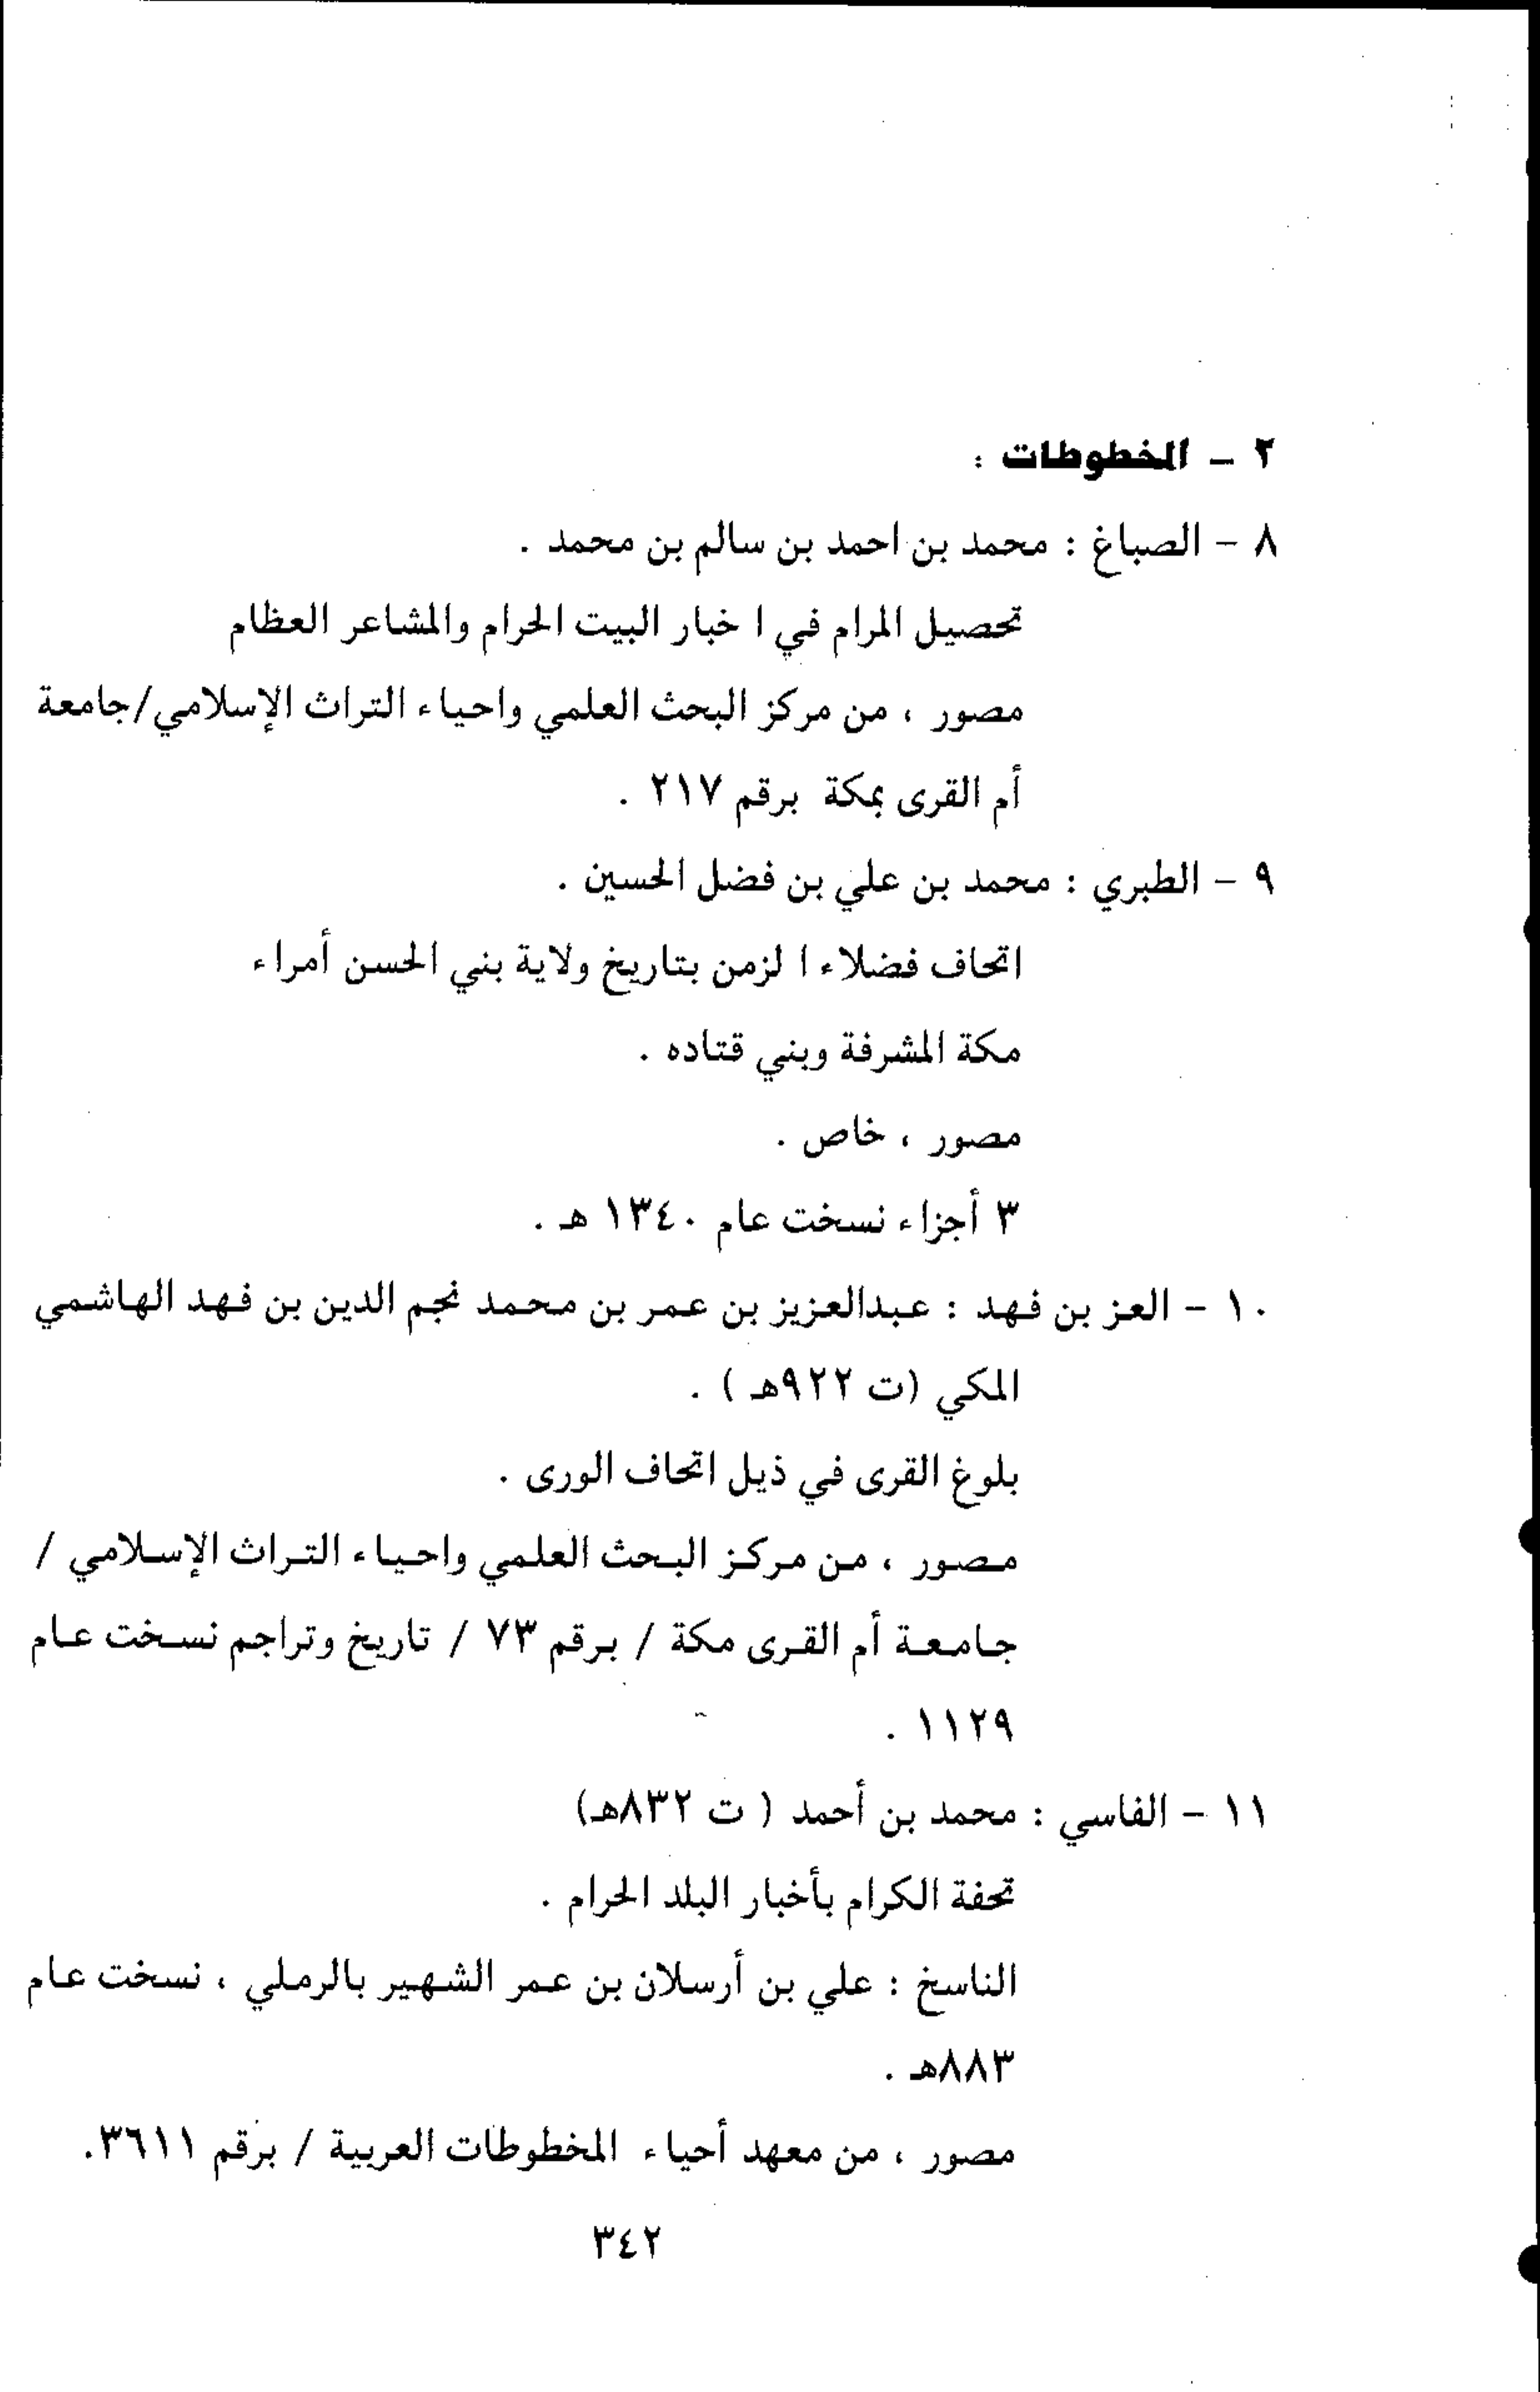 ٢ – المخطوطات :
٨ – الصباغ : محمد بن احمد بن سالم بن محمد .
تحصيل المرام في ا خبار البيت الحرام والمشاعر العظام
مصور ، من مركز البحث العلمي واحياء التراث الإسلامي/جامعة
أم القرى بمكة برقم ٢١٧ .
٩ – الطبري : محمد بن علي بن فضل الحسين .
اتحاف فضلاء ا لزمن بتاريخ ولاية بني الحسن أمراء
مكة المشرفة وبني قتاده .
مصور ، خاص .
٣ أجزاء نسخت عام ١٣٤٠ هـ .
١٠ – العز بن فهد : عبدالعزيز بن عمر بن محمد نجم الدين بن فهد الهاشمي
المكي (ت ٩٢٢هـ ) .
بلوغ القرى في ذيل اتحاف الورى .
مصور ، من مركز البحث العلمي واحياء التراث الإسلامي /
جامعة أم القرى مكة / برقم ٧٣ / تاريخ وتراجم نسخت عام
١١٢٩ .
١١ – الفاسي : محمد بن أحمد ( ت ٨٣٢هـ)
تحفة الكرام بأخبار البلد الحرام .
الناسخ : علي بن أرسلان بن عمر الشهير بالرملي ، نسخت عام
٨٨٣هـ .
مصور ، من معهد أحياء المخطوطات العربية / برقم ٣٦١١.
٣٤٢